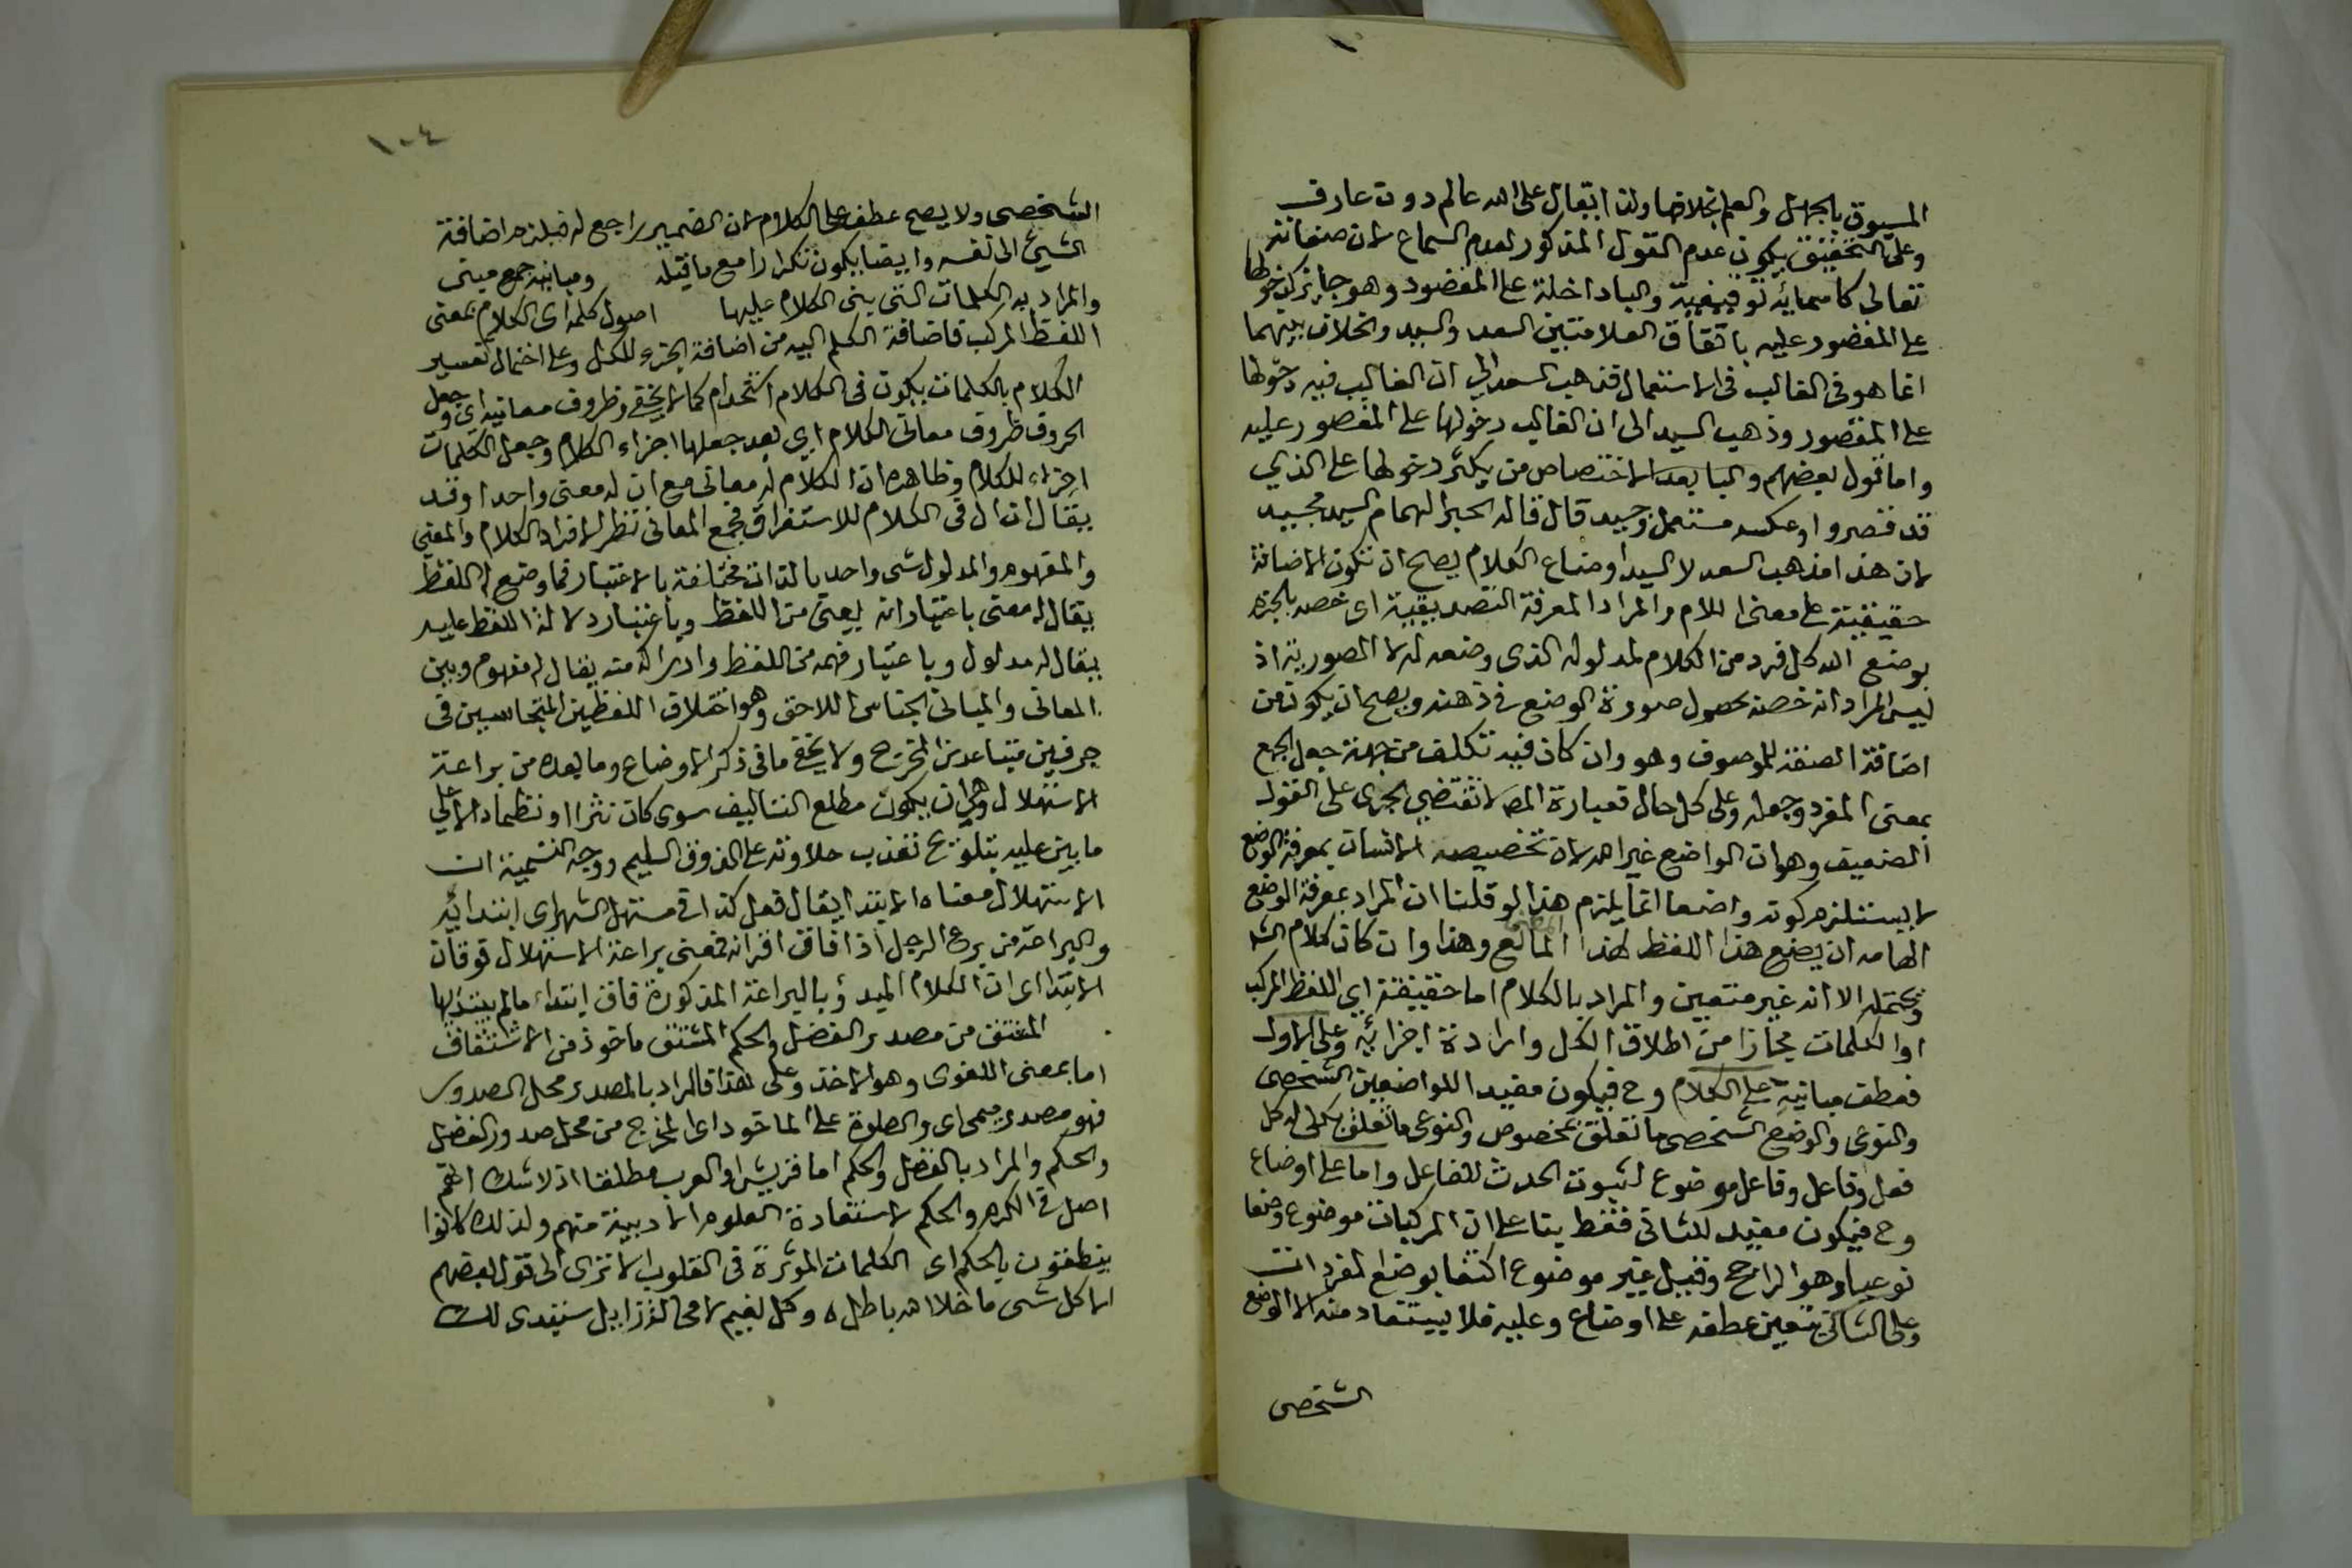 المسبوق بالجهل والعلم بخلافها ولذا يقال على الله عالم دون عارف
وعلى التحقيق يكون عدم القول المذكور لعدم السماع لان صفاته
تعالى كاسمائه توقيفية والبا داخلة على المقصود وهو جايز كدخولها
على المقصور عليه باتفاق العلامتين السعد والسيد والخلاف بينهما
انما هو فى الغالب فى الاستعمال فذهب السعد الى ان الغالب فيه دخولها
على المقصور وذهب السيد الى ان الغالب دخولها على المقصور عليه
واما قول بعضهم والبا بعد الاختصاص من يكثر دخولها على الذي
قد قصروا وعكسه مستعمل وجيد قال قاله الحبر الهمام السيد مجيبه
لان هذا مذهب السعد لا السيد اوضاع الكلام يصح ان تكون الاضافة
حقيقية على معنى اللام والمراد المعرفة التصديقية اى خصه بالجزم
بوضع الله كل فرد من الكلام لمدلوله الذى وضعه له لا الصورية اذ
ليس المراد انه خصه بحصول صورة الوضع فى ذهنه ويصح ان يكون من
اضافة الصفة للموصوف وهو وان كان فيه تكلف من جهة جعل الجمع
بمعنى المفرد وجعله وعلى كل حال فعبارة المص لا تقتضي الجرى على القول
الضعيف وهو ان الواضع غير الله لان تخصيصه الانسان بمعرفة الوضع
لا يستلزم كونه واضعا انما يلزم هذا لو قلنا ان المراد بمعرفة الوضع
الهامه ان يضع هذا اللفظ لهذا المعنى وهذا وان كان كلام الش
يحتمله الا انه غير متعين والمراد بالكلام اما حقيقته اي اللفظ المركب
او الكلمات مجازا من اطلاق الكل وارادة اجزائه وعلى الاول
فعطف مبانيه على الكلام وح فيكون مفيدا للواضعين الشخصى
والنوعى والوضع الشخصى ما تعلق بمخصوص والنوعى ما تعلق بكلى له كل
فعل وفاعل وفاعل موضوع لثبوت الحدث للفاعل واما على اوضاع
وح فيكون مفيد للثانى فقط بنا على ان المركبات موضوعة وضعا
نوعيا وهو الراجح وقيل غير موضوع اكتفا بوضع المفردات
وعلى الثانى يتعين عطفه على اوضاع وعليه فلا يستفاد منه الا الوضع
الشخصى
١٠٤
الشخصى ولا يصح عطفه على الكلام لان الضمير راجع له فيلزم اضافة
الشيئ الى نفسه وايضا يكون تكرارا مع ما قبله ومبانيه جمع مبنى
والمراد به الكلمات التى بنى الكلام عليها اصول كلمه اى الكلام بمعنى
اللفظ المركب فاضافة الكلم اليه من اضافة الجزء للكل وعلى احتمال تفسير
الكلام بالكلمات يكون فى الكلام استخدام كما لا يخفى وظروف معانيه اى وجعل
الحروف ظروف معانى الكلام اي بعد جعلها اجزاء الكلام وجعل الكلمات
اجزاء للكلام وظاهره ان الكلام له معانى مع ان له معنى واحدا وقد
يقال ان ال فى الكلام للاستغراق فجمع المعانى نظر لافراد الكلام والمعنى
والمفهوم والمدلول شى واحد بالذات مختلفة بالاعتبار فما وضع له اللفظ
يقال له معنى باعتبار انه يعنى من اللفظ وباعتبار دلالة اللفظ عليه
يقال له مدلول وباعتبار فهمه من اللفظ وادراكه منه يقال له مفهوم وبين
المعانى والمبانى الجناس اللاحق وهو اختلاف اللفظين المتجانسين فى
حرفين متباعدين المخرج ولا يخفى ما فى ذكر الاوضاع وما بعده من براعة
الاستهلال وهى ان يكون مطلع التاليف سوى كان نثرا او نظما دالا على
ما بنى عليه بتلويح تعذب حلاوته على الذوق السليم ووجه التسمية ان
الاستهلال معناه الابتدا يقال فعل كذا فى مستهل الشهر اى ابتدائيه
والبراعة من برع الرجل اذا فاق اقرانه فمعنى براعة الاستهلال فوقان
الابتدا اى ان الكلام المبدؤ بالبراعة المذكورة فاق ابتداء ما لم يبتدأ بها
المشتق من مصدر الفضل والحكم المشتق ماخوذ من الاشتقاق
اما بمعنى اللغوى وهو الاخذ وعلى هذا فالمراد بالمصدر محل الصدور
فهو مصدر ميمى اى والصلوة على الماخوذ اى المخرج من محل صدور الفضل
والحكم والمراد بالفضل والحكم اما قريش او العرب مطلقا اذ لا شك انهم
اصل فى الكرم والحكم لاستفادة العلوم الادبية منهم ولذلك كانوا
ينطقون بالحكم اى الكلمات الموثرة فى القلوب الا ترى الى قول بعضهم
الا كل شى ما خلا الله باطل ه وكل نعيم لا محالة زايل ستبدى لك